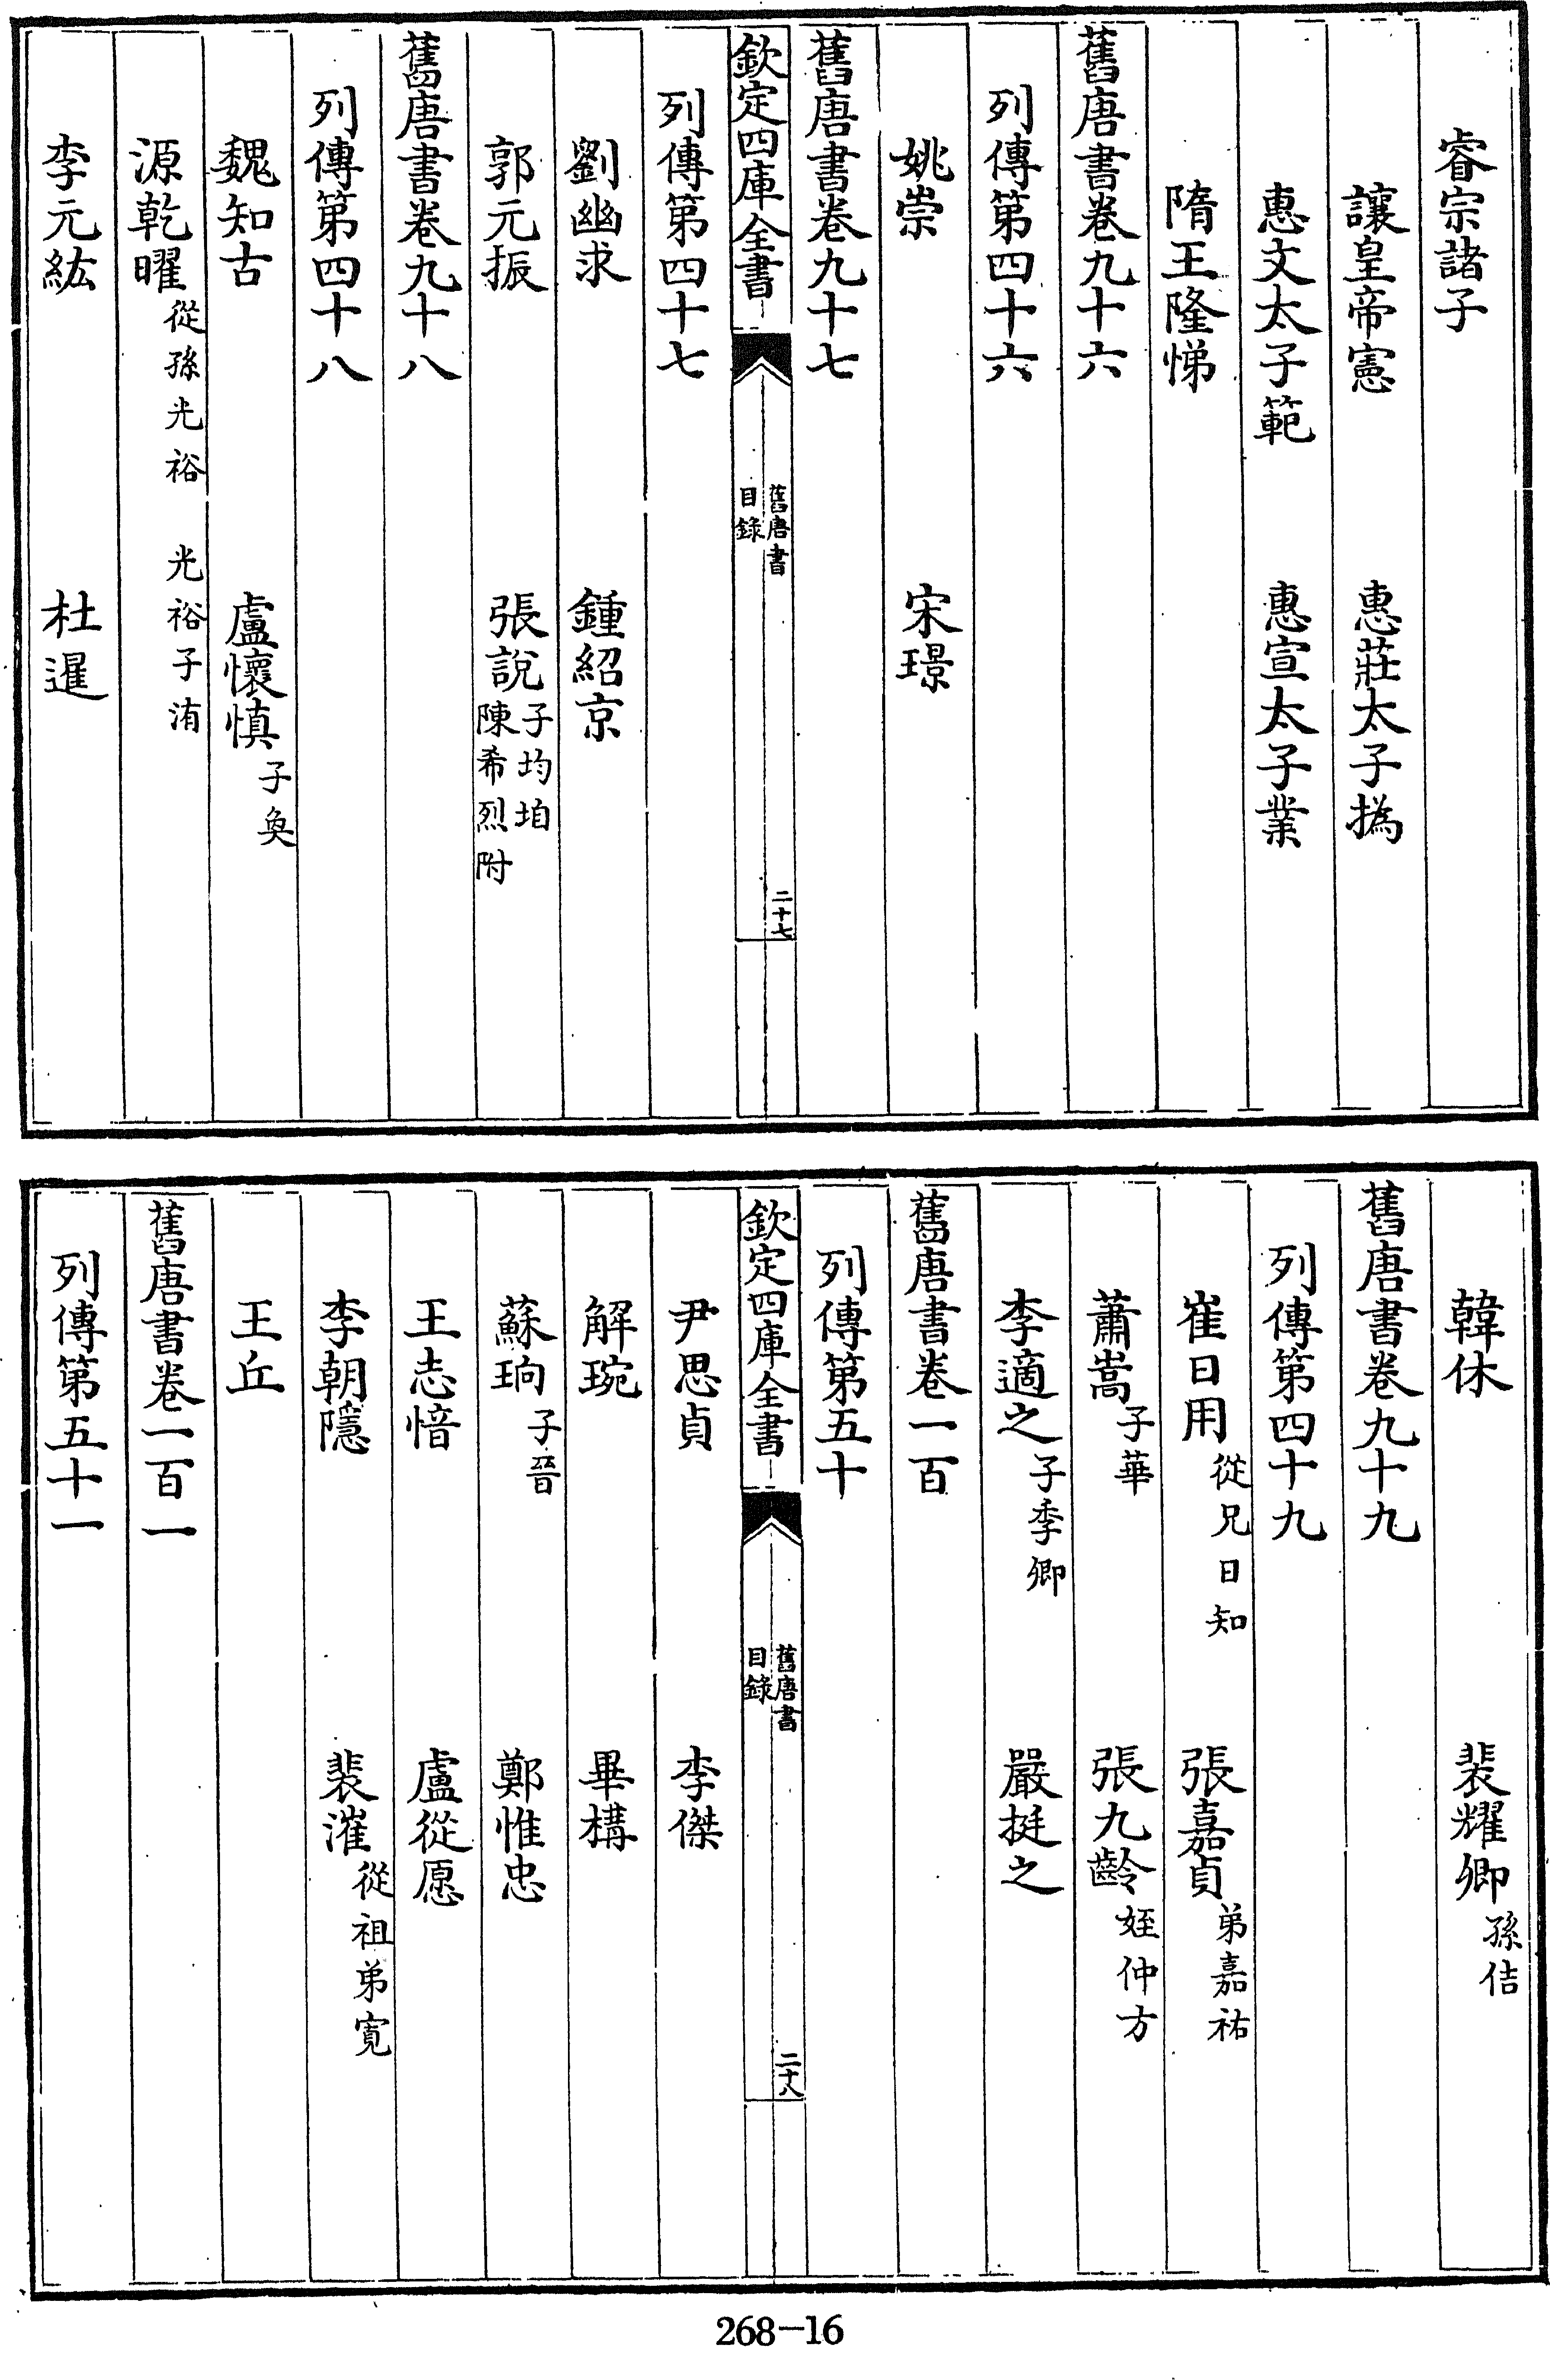 睿宗諸子
讓皇帝憲　惠莊太子撝
惠文太子範　惠宣太子業
隋王隆悌
舊唐書卷九十六
列傳第四十六
姚崇　宋璟
舊唐書卷九十七
欽定四庫全書　舊唐書目錄　二十七
列傳第四十七
劉幽求　鍾紹京
郭元振　張說子均垍陳希烈附
舊唐書卷九十八
列傳第四十八
魏知古　盧懷慎子奐
源乾曜從孫光裕　光裕子洧
李元紘　杜暹
韓休　裴耀卿孫佶
舊唐書卷九十九
列傳第四十九
崔日用從兄日知　張嘉貞弟嘉祐
蕭嵩子華　張九齡姪仲方
李適之子季卿　嚴挺之
舊唐書卷一百
列傳第五十
欽定四庫全書　舊唐書目錄　二十八
尹思貞　李傑
解琬　畢構
蘇珦子晉　鄭惟忠
王志愔　盧從愿
李朝隱　裴漼從祖弟寬
王丘
舊唐書卷一百一
列傳第五十一
268-16